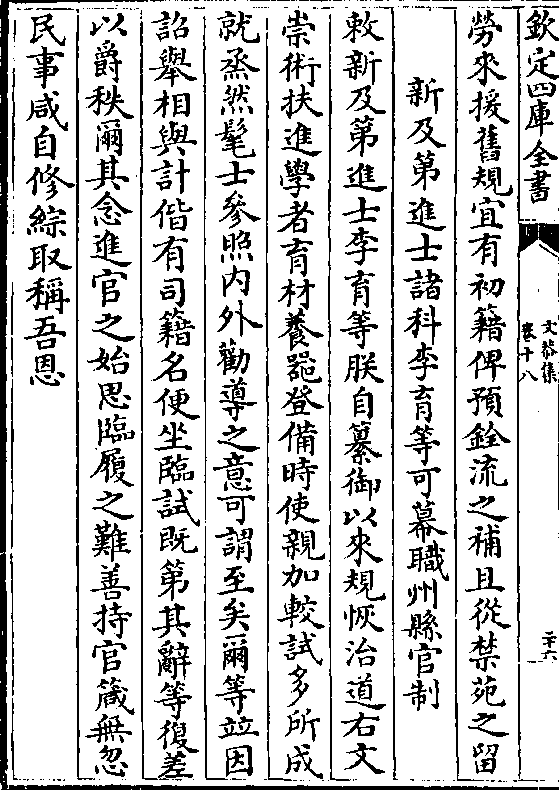 欽定四庫全書
文恭集
卷十八
二十六
勞來援舊規宜有初籍俾預銓流之補且從禁苑之留
新及第進士諸科李育等可幕職州縣官制
敕新及第進士李育等朕自纂御以來規恢治道右文
崇術扶進學者育材養器登備時使親加較試多所成
就烝然髦士參照内外勸導之意可謂至矣爾等並因
詔舉相與計偕有司籍名便坐臨試既第其辭等復差
以爵秩爾其念進官之始思臨履之難善持官箴無忽
民事咸自修綜取稱吾恩